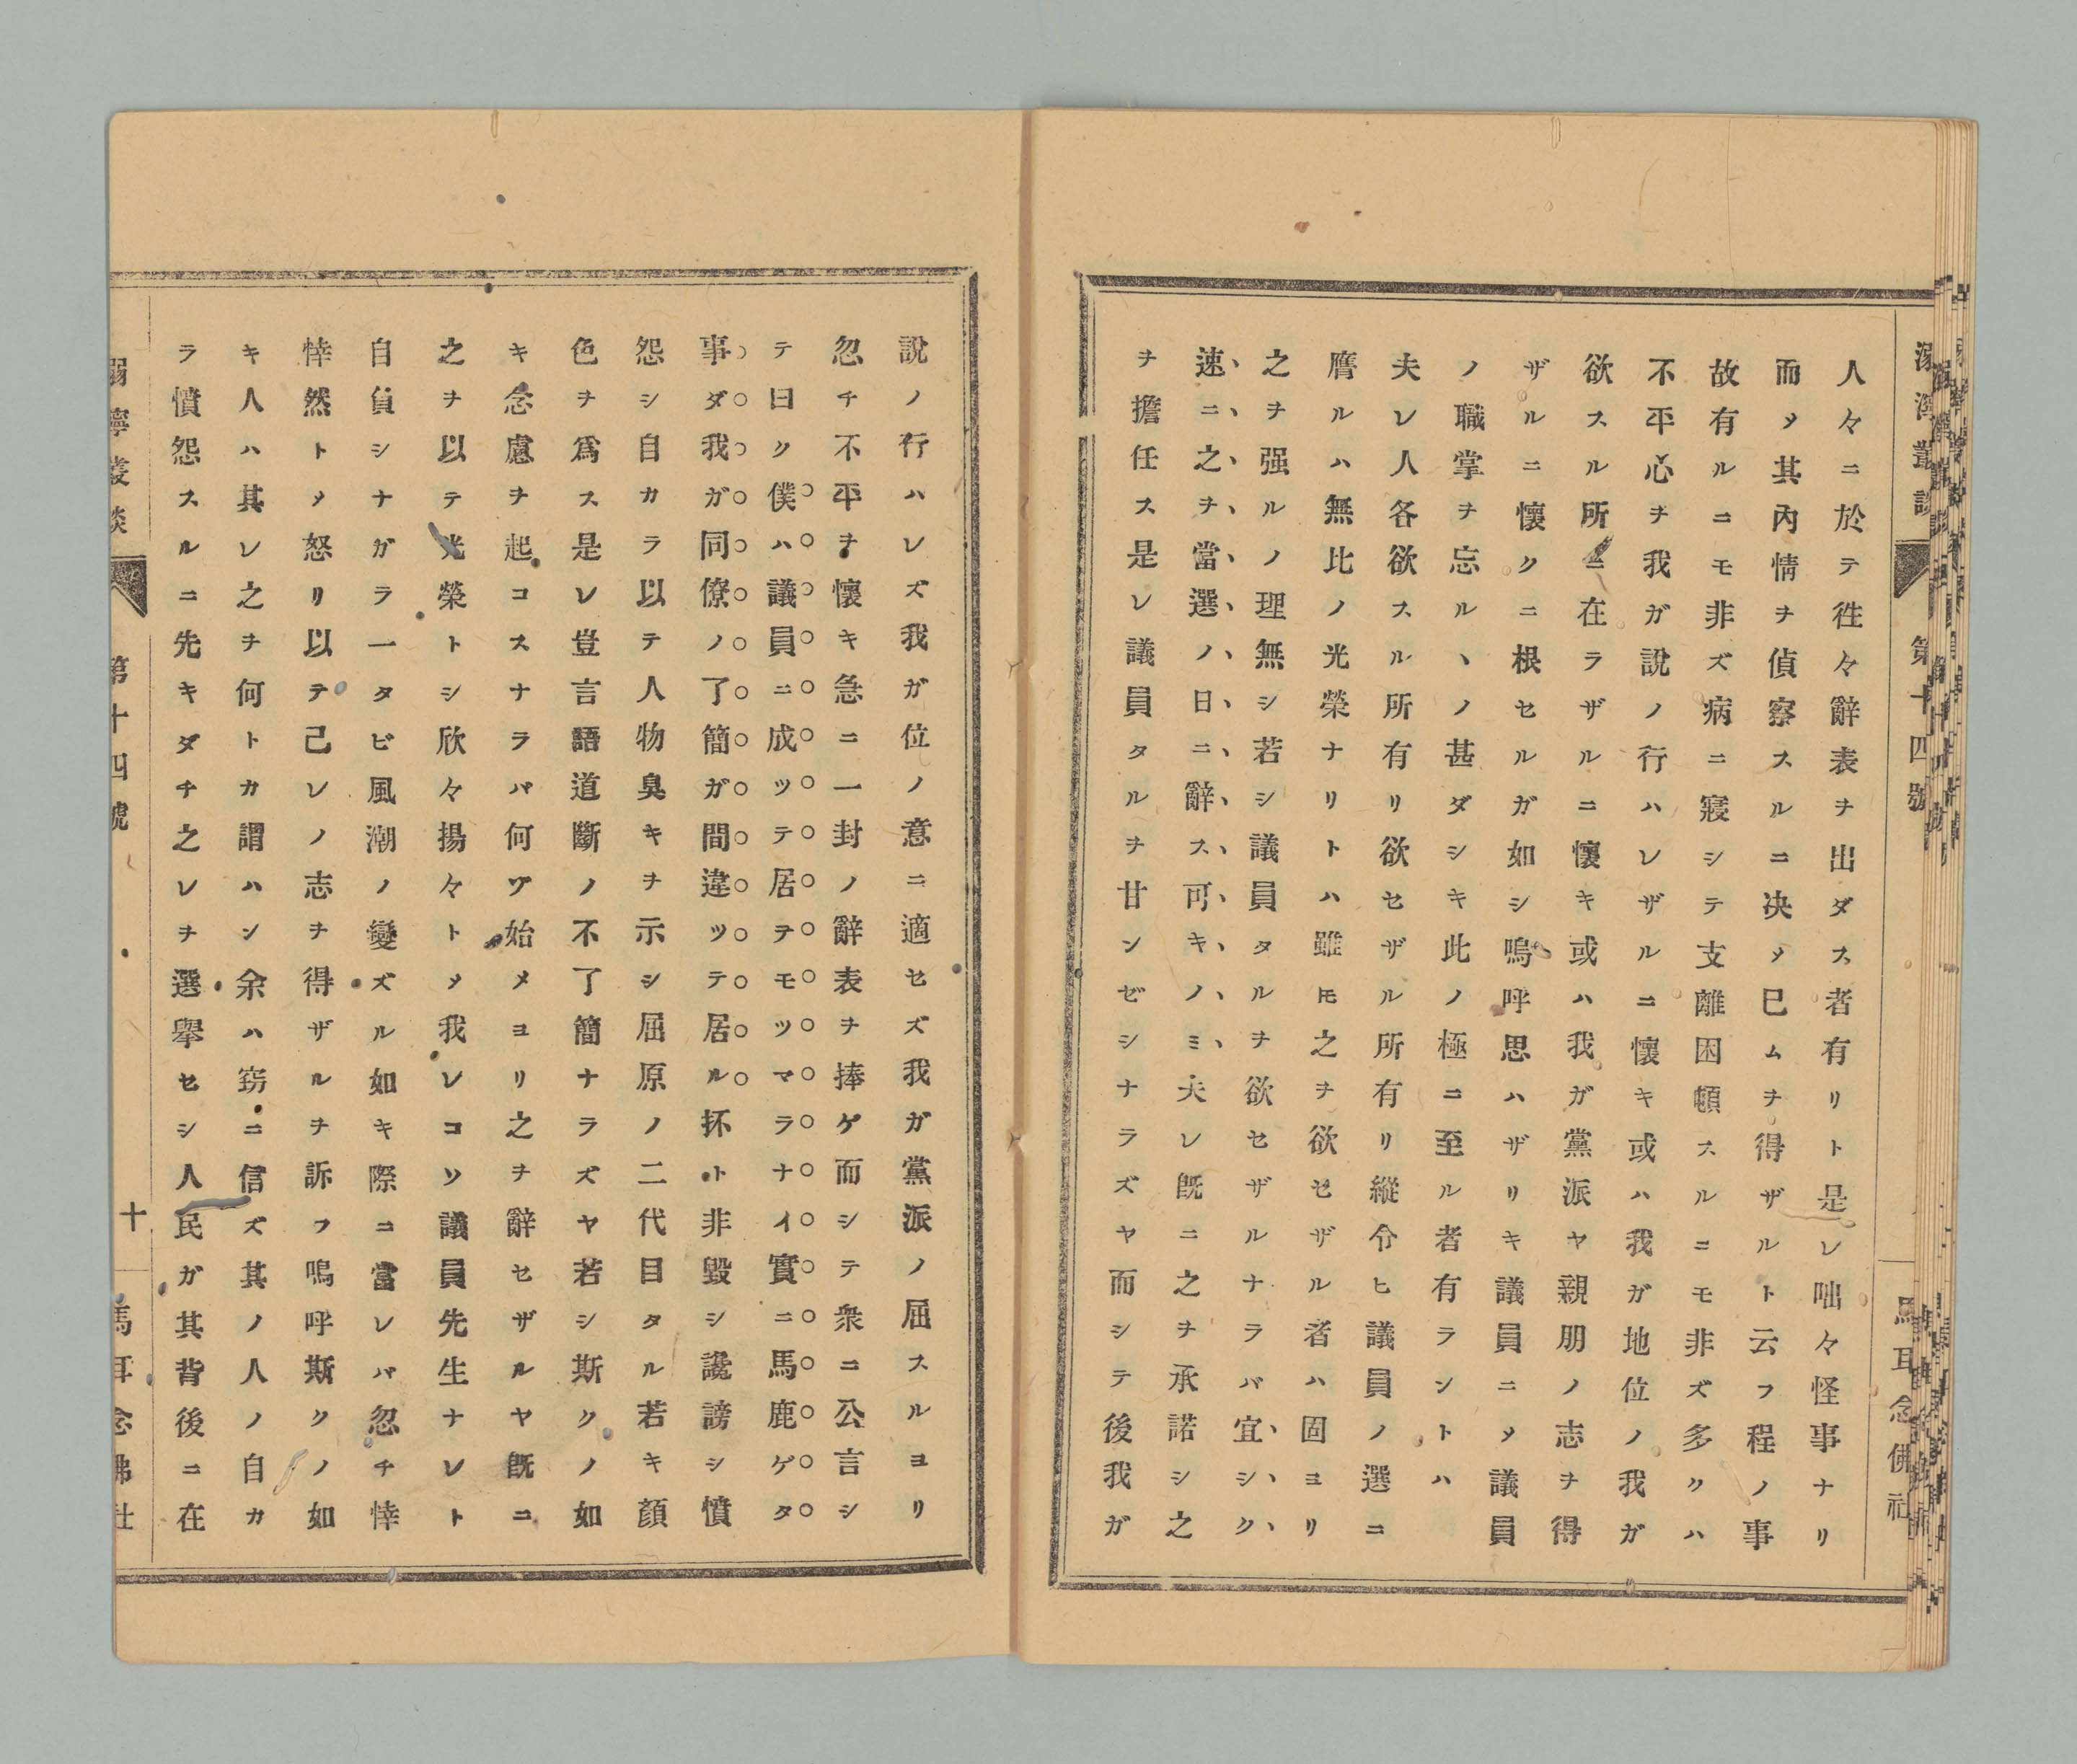 人々ニ於テ徃々辭表ヲ出ダス者有リト是レ咄々怪事ナリ
而〆其內情ヲ偵察スルニ决〆已ムヲ得ザルト云フ程ノ事
故有ルニモ非ズ病ニ寢シテ支離困頓スルニモ非ズ多クハ
不平心ヲ我ガ說ノ行ハレザルニ懷キ或ハ我ガ地位ノ我ガ
欲スル所ニ在ラザルニ懷キ或ハ我ガ黨派ヤ親朋ノ志ヲ得
ザルニ懷クニ根セルガ如シ嗚呼思ハザリキ議員ニ〆議員
ノ職掌ヲ忘ルヽノ甚ダシキ此ノ極ニ至ル者有ラントハ
夫レ人各欲スル所有リ欲セザル所有リ縱令ヒ議員ノ選ニ
膺ルハ無比ノ光榮ナリトハ雖ヒ之ヲ欲セザル者ハ固ヨリ
之ヲ强ルノ理無シ若シ議員タルヲ欲セザルナラバ宜シク
速ニ之ヲ當選ノ日ニ辭ス可キノミ夫レ旣ニ之ヲ承諾シ之
ヲ擔任ス是レ議員タルヲ甘ンゼシナラズヤ而シテ後我ガ
第十四號
馬耳念佛社
說ノ行ハレズ我ガ位ノ意ニ適セズ我ガ黨派ノ屈スルヨリ
忽チ不平ヲ懷キ急ニ一封ノ辭表ヲ捧ゲ而シテ衆ニ公言シ
テ曰ク僕ハ議員ニ成ッテ居テモツマラナイ實ニ馬鹿ゲタ
事ダ我ガ同僚ノ了簡ガ間違ッテ居ル抔ト非毀シ讒謗シ憤
怨シ自カラ以テ人物臭キヲ示シ屈原ノ二代目タル若キ顏
色ヲ爲ス是レ豈言語道斷ノ不了簡ナラズヤ若シ斯クノ如
キ念慮ヲ起コスナラバ何ヅ始メヨリ之ヲ辭セザルヤ旣ニ
之ヲ以テ光榮トシ欣々揚々ト〆我レコソ議員先生ナレト
自負シナガラ一タビ風潮ノ變ズル如キ際ニ當レバ忽チ悻
悻然ト〆怒リ以テ己レノ志ヲ得ザルヲ訴フ嗚呼斯クノ如
キ人ハ其レ之ヲ何トカ謂ハン余ハ窃ニ信ズ其ノ人ノ自カ
ラ憤怨スルニ先キダチ之レヲ選擧セシ人民ガ其背後ニ在
第十四號
十
馬耳念佛社